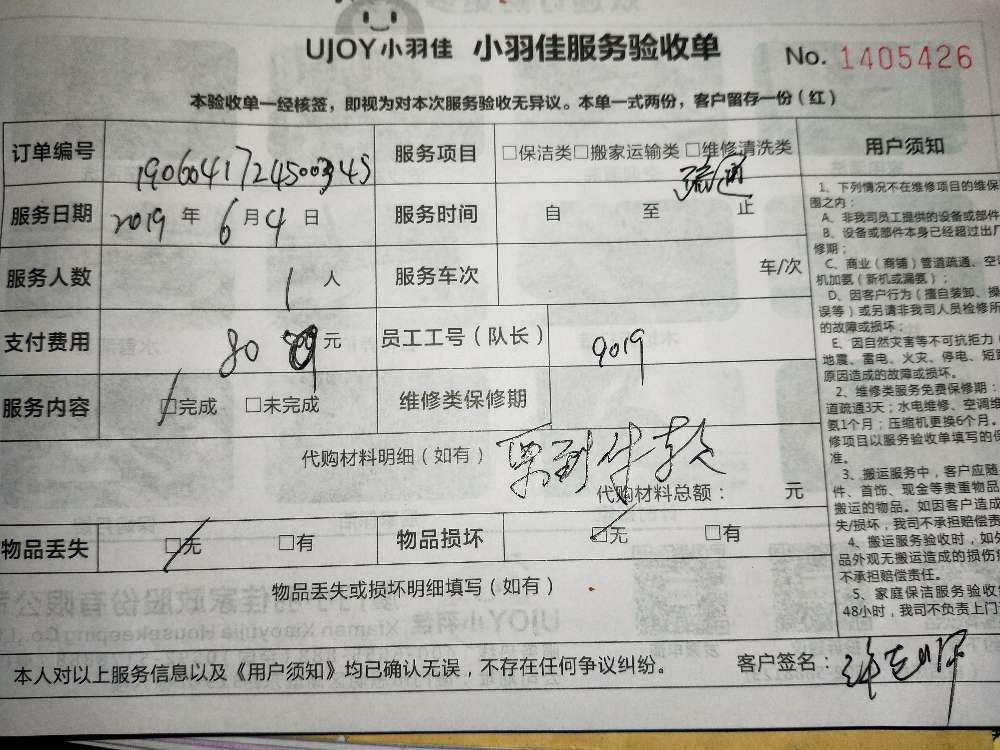 UJOY小羽佳 小羽佳服务验收单 No. 1405426
本验收单一经核签，即视为对本次服务验收无异议。本单一式两份，客户留存一份（红）
订单编号 190604172450034S 服务项目 □保洁类□搬家运输类 □维修清洗类
疏通
服务日期 2019 年 6 月 4 日 服务时间 自 至 止
服务人数 1 人 服务车次 车/次
支付费用 80 元 员工工号（队长） 9019
服务内容 □完成 □未完成 维修类保修期
代购材料明细（如有） 票到付款
代购材料总额： 元
物品丢失 □无 □有 物品损坏 □无 □有
物品丢失或损坏明细填写（如有）
本人对以上服务信息以及《用户须知》均已确认无误，不存在任何争议纠纷。 客户签名：
用户须知
1、下列情况不在维修项目的维保
围之内：
A、非我司员工提供的设备或部件
B、设备或部件本身已经超过出厂
修期；
C、商业（商铺）管道疏通、空调
机加氨（新机或漏氨）；
D、因客户行为（擅自装卸、操
误等）或另请非我司人员检修所
的故障或损坏；
E、因自然灾害等不可抗拒力（
地震、雷电、火灾、停电、短路
原因造成的故障或损坏。
2、维修类服务免费保修期：
道疏通3天；水电维修、空调维
氨1个月；压缩机更换6个月。
修项目以服务验收单填写的保
准。
3、搬运服务中，客户应随
件、首饰、现金等贵重物品
搬运的物品。如因客户造成
失/损坏，我司不承担赔偿责
4、搬运服务验收时，如外
品外观无搬运造成的损伤
不承担赔偿责任。
5、家庭保洁服务验收
48小时，我司不负责上门